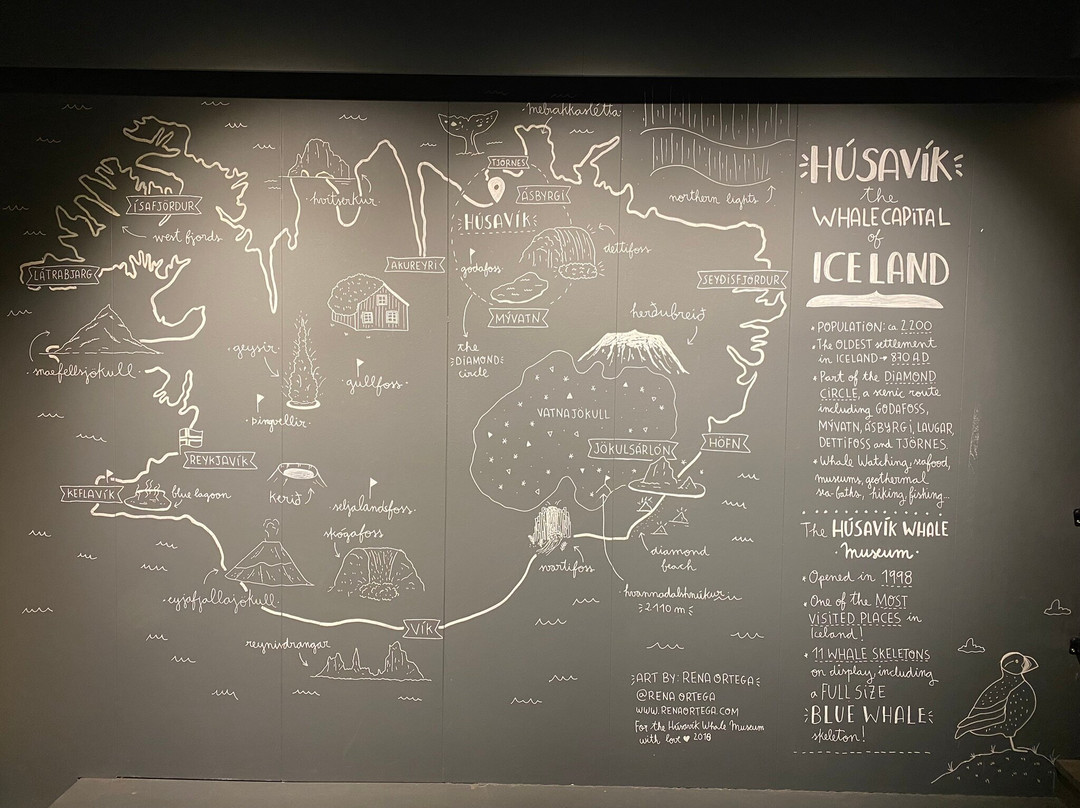 merrakkaslétta
TJÖRNES
ÁSBYRGI
HÚSAVÍK
northern lights
hvítserkur
ÍSAFJÖRÐUR
west fjords
LÁTRABJARG
AKUREYRI
goðafoss
dettifoss
MÝVATN
SEYÐISFJÖRÐUR
herðubreið
the
DIAMOND
circle
snaefellsjökull
geysir
gullfoss
þingvellir
VATNAJÖKULL
JÖKULSÁRLÓN
HÖFN
REYKJAVÍK
KEFLAVÍK
blue lagoon
kerið
seljalandsfoss
skógafoss
svartifoss
diamond
beach
hvannadalshnúkur
2·110 m
eyjafjallajökull
VÍK
reynisdrangar
ART BY: RENA ORTEGA
@RENA ORTEGA
WWW.RENAORTEGA.COM
For the Húsavík Whale Museum
with love ♥ 2018
HÚSAVÍK
the
WHALE CAPITAL
of
ICELAND
• POPULATION: ca 2.200
• The OLDEST settlement
in ICELAND → 870 AD
• Part of the DIAMOND
CIRCLE, a scenic route
including GODAFOSS,
MÝVATN, ÁSBYRGI, LAUGAR,
DETTIFOSS and TJÖRNES.
• Whale Watching, seafood,
museums, geothermal
sea-baths, hiking, fishing...
The HÚSAVÍK WHALE
• Museum •
• Opened in 1998
• One of the MOST
VISITED PLACES in
Iceland!
• 11 WHALE SKELETONS
on display, including
a FULL SIZE
BLUE WHALE
skeleton!